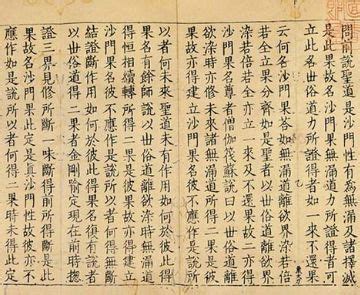 問前說聖道是沙門性有為無漏及諸擇滅
是此果故名沙門果無漏道力所證得者可
立此名世俗道力所證得者如一來不還果
云何名沙門果荅如無漏道離欲界染若倍
若全立果分齊如是聖者以世俗道離欲界
染若倍若全亦立一來及不還果故二亦得
沙門果名尊者僧伽伐蘇說曰以世俗道離
欲染時亦修未來諸無漏道所得二果是彼
果故亦得建立沙門果名彼不應作是說所
以者何未來聖道未有作用如何於彼此得
果名有餘師說以世俗道離欲染時無漏道
得恒相續轉所得二果是彼果故亦得建立
沙門果名彼不應作是說所以者何得無斷
結證斷作用如何於彼此得果名復有說者
以世俗道得二果者金剛喻定現在前時揔
證三界見修所斷一味斷得前所得斷是此
果故名沙門果此定是真沙門性故彼亦不
應作如是說所以者何得二果時未得此定